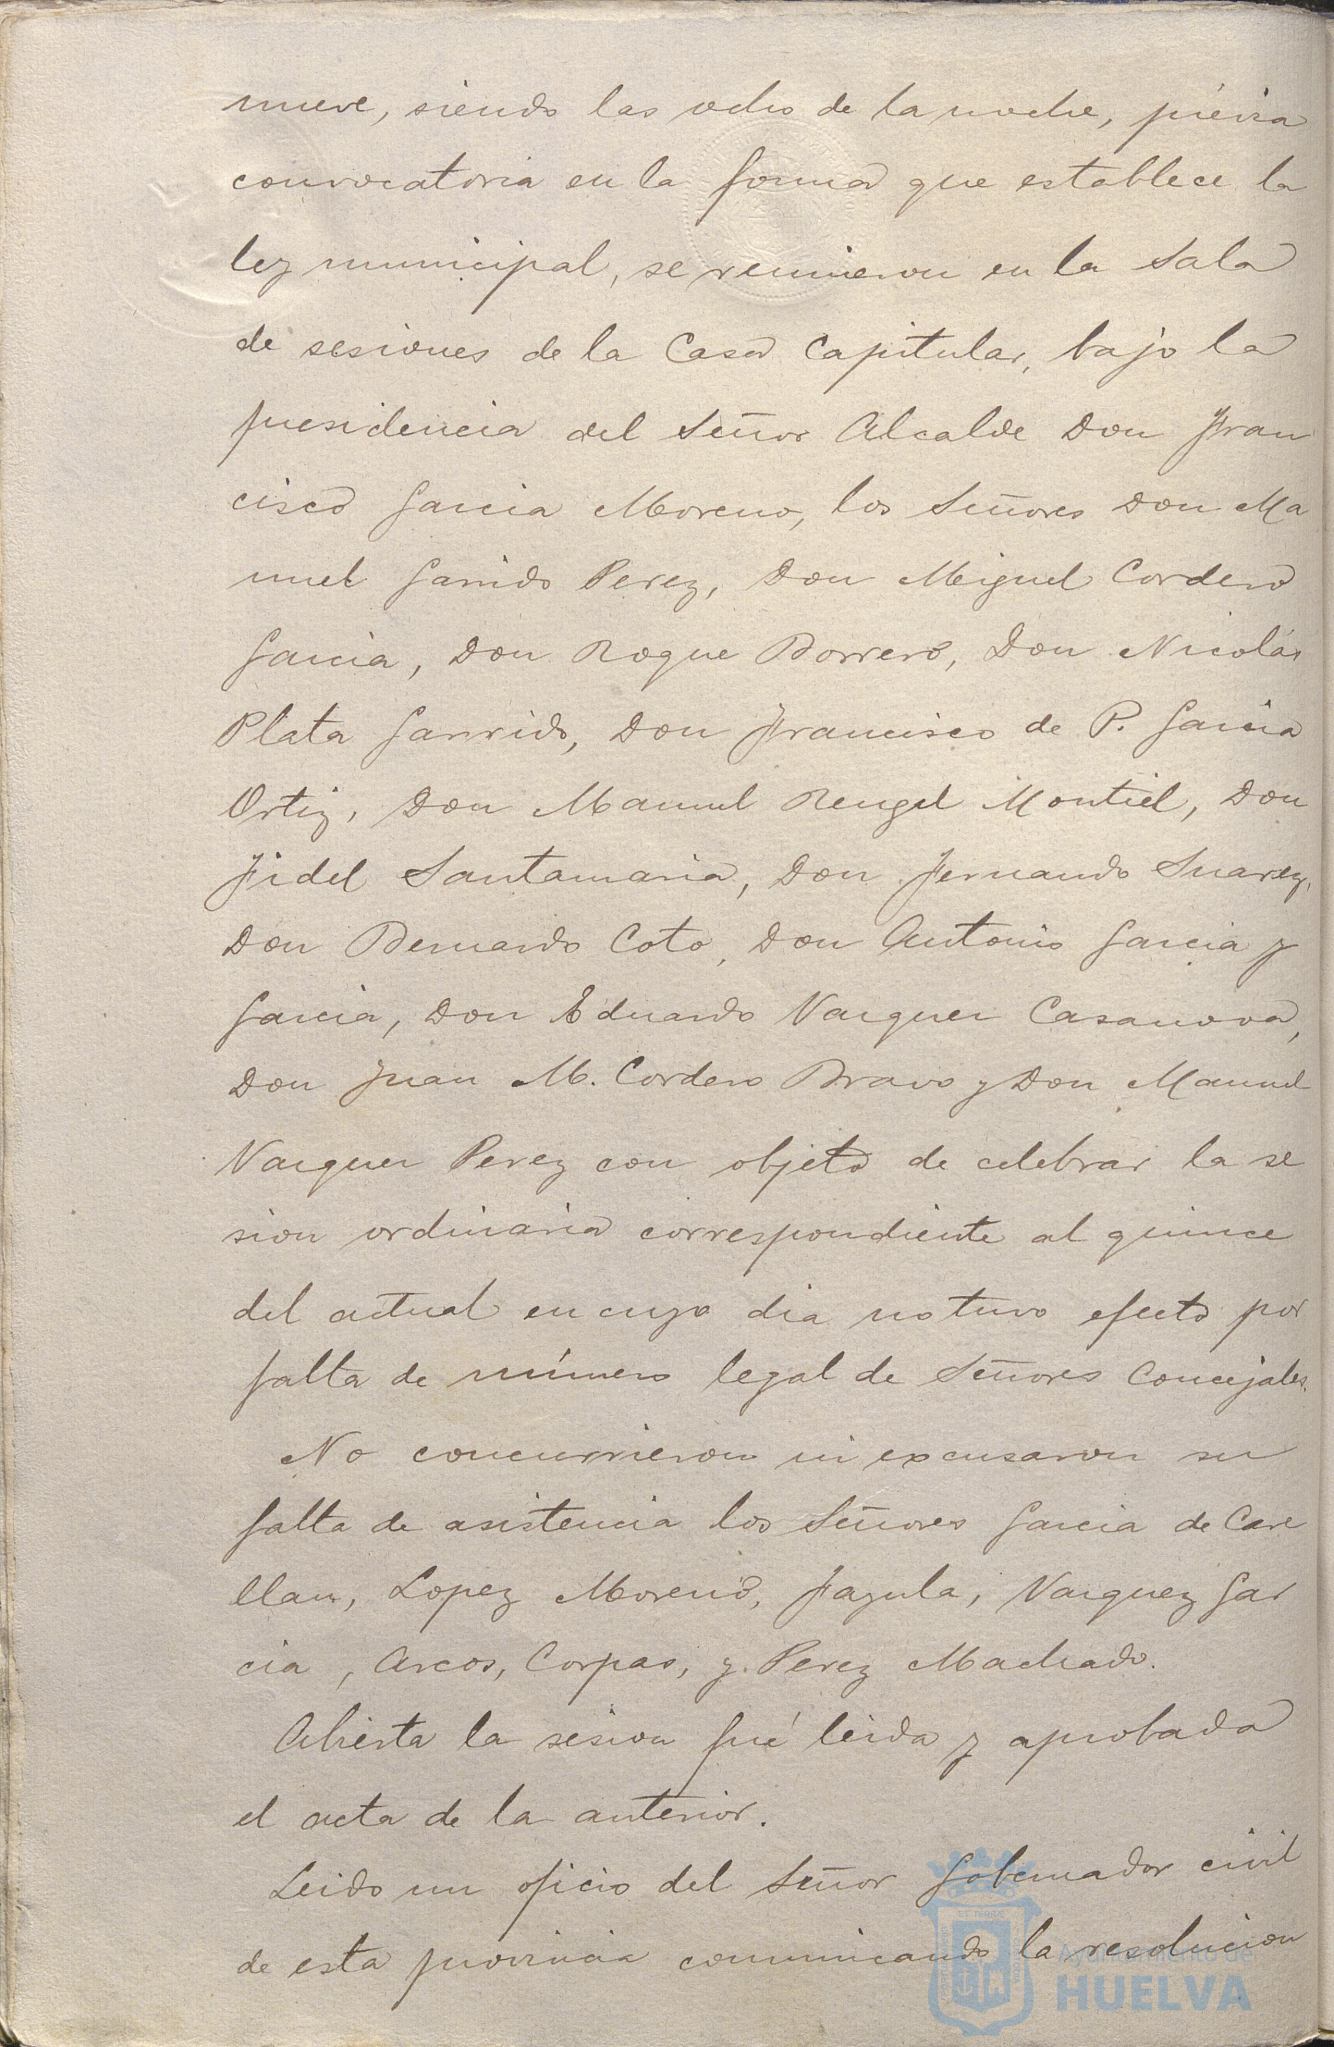 nueve, siendo las ocho de la noche, prévia
convocatoria en la forma que establece la
ley municipal, se reunieron en la Sala
de sesiones de la Casa Capitular, bajo la
presidencia del Señor Alcalde Don Fran
cisco Garcia Moreno, los Señores Don Ma
nuel Garrido Perez, Don Miguel Cordero
Garcia, Don Roque Borrero, Don Nicolás
Plata Garrido, Don Francisco de P. Garcia
Ortiz, Don Manuel Rengel Montiel, Don
Fidel Santamaria, Don Fernando Suarez,
Don Bernardo Coto, Don Antonio Garcia y
Garcia, Don Eduardo Vazquez Casanova,
Don Juan M. Cordero Bravo y Don Manuel
Vazquez Perez con objeto de celebrar la se
sion ordinaria correspondiente al quince
del actual en cuyo dia no tuvo efecto por
falta de número legal de Señores Concejales.
No concurrieron ni excusaron su
falta de asistencia los Señores Garcia de Care
llan, Lopez Moreno, Fazula, Vazquez Gar
cia, Arcos, Corpas, y Perez Machado.
Abierta la sesion fué leida y aprobada
el acta de la anterior.
Leido un oficio del Señor Gobernador civil
de esta provincia comunicando la resolucion
Ayuntamiento de
HUELVA